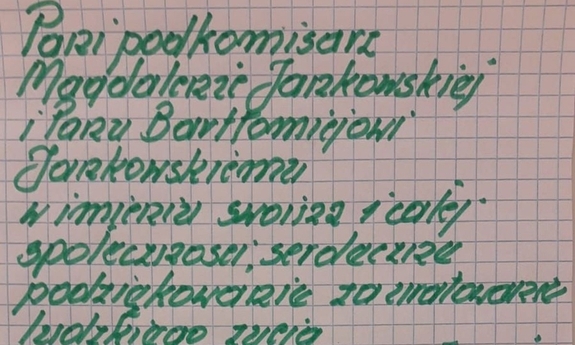 Pani podkomisarz
Magdalenie Jankowskiej
i Panu Bartłomiejowi
Jankowskiemu
w imieniu swoim i całej
społeczności, serdeczne
podziękowanie za uratowanie
ludzkiego życia